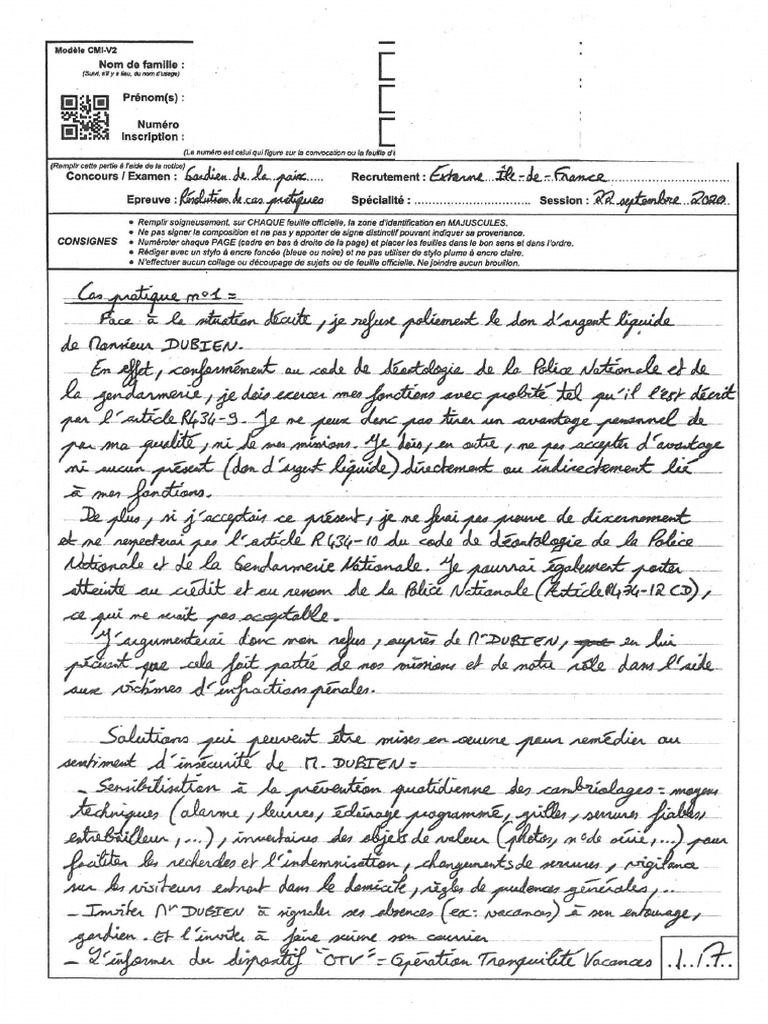 Modèle CMI-V2
Nom de famille :
(Suivi, s'il y a lieu, du nom d'usage)
Prénom(s) :
Numéro
Inscription :
(Le numéro est celui qui figure sur la convocation ou la feuille d'
(Remplir cette partie à l'aide de la notice)
Concours / Examen : Gardien de la paix..... Recrutement : Externe Île-de-France
Epreuve : Résolution de cas pratiques Spécialité : ........................ Session : 22 septembre 2020
CONSIGNES
• Remplir soigneusement, sur CHAQUE feuille officielle, la zone d'identification en MAJUSCULES.
• Ne pas signer la composition et ne pas y apporter de signe distinctif pouvant indiquer sa provenance.
• Numéroter chaque PAGE (cadre en bas à droite de la page) et placer les feuilles dans le bon sens et dans l'ordre.
• Rédiger avec un stylo à encre foncée (bleue ou noire) et ne pas utiliser de stylo plume à encre claire.
• N'effectuer aucun collage ou découpage de sujets ou de feuille officielle. Ne joindre aucun brouillon.
Cas pratique n°1 =
Face à la situation décrite, je refuse poliement le don d'argent liquide
de Monsieur DUBIEN.
En effet, conformément au code de déontologie de la Police Nationale et de
la gendarmerie, je dois exercer mes fonctions avec probité tel qu'il l'est décrit
par l'article R434-9. Je ne peux donc pas tirer un avantage personnel de
par ma qualité, ni de mes missions. Je dois, en outre, ne pas accepter d'avantage
ni aucun présent (don d'argent liquide) directement ou indirectement lié
à mes fonctions.
De plus, si j'acceptais ce présent, je ne ferai pas preuve de discernement
et ne respecterai pas l'article R434-10 du code de déontologie de la Police
Nationale et de la Gendarmerie Nationale. Je pourrai également porter
atteinte au crédit et au renom de la Police Nationale (Article R434-12 CD),
ce qui ne serait pas acceptable.
J'argumenterai donc mon refus, auprès de Mr DUBIEN, que en lui
précisant que cela fait partie de nos missions et de notre rôle dans l'aide
aux victimes d'infractions pénales.
Solutions qui peuvent être mises en œuvre pour remédier au
sentiment d'insécurité de M. DUBIEN =
- Sensibilisation à la prévention quotidienne des cambriolages = moyens
techniques (alarme, leurres, éclairage programmé, grilles, serrures fiables,
entrebailleur, ...), inventaires des objets de valeur (photos, n° de série, ...) pour
faciliter les recherches et l'indemnisation, changements de serrures, vigilance
sur les visiteurs entrant dans le domicile, règles de prudences générales, ...
- Inviter Mr DUBIEN à signaler ses absences (ex : vacances) à son entourage,
gardien. Et l'inviter à faire suivre son courrier
- L'informer du dispositif "OTV" = Opération Tranquilité Vacances
.1../.7..